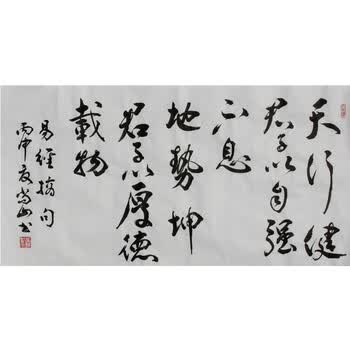 天行健
君子以自强
不息
地势坤
君子以厚德
載物
易經摘句
丙申夏